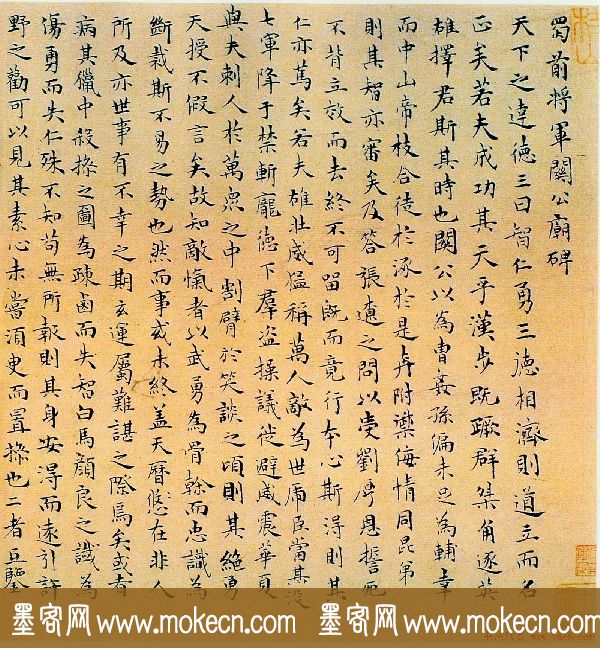 蜀前将軍關公廟碑
天下之達徳三曰智仁勇三徳相濟則道立而名
正矣若夫成功其天乎漢步既蹶群桀角逐英
雄擇君斯其時也關公以為曹姦孫偏未足為輔幸
而中山帝枝合徒於涿於是弃附禦侮情同昆弟
則其智亦審矣及答張遼之問以受劉厚恩誓死
不背立效而去終不可留既而竟行本心斯得則其
仁亦篤矣若夫雄壯威猛稱萬人敵為世席臣當其沒
七軍降于禁斬龐徳下羣盜操議徙避威震華夏
與夫刺人於萬眾之中割臂於笑談之頃則其絕勇
天授不假言矣故知敵愾者以武勇為骨榦而忠識為
斷裁斯不易之勢也然而事或未終盖天曆悠在非人
所及亦世事有不幸之期玄運屬難諶之際焉矣或者
病其獵中殺操之圖為疎鹵而失智白馬顔良之識為
傷勇而失仁殊不知苟無所報則其身安得而遠引許
野之勸可以見其素心未嘗須臾而置操也二者互鑒
墨客网 www.mokecn.com 墨客网 www.mokecn.com